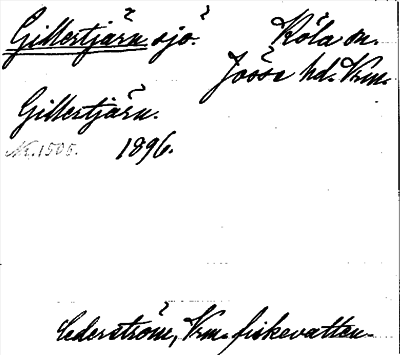 Gillertjärn sjö. Köla sn.
Jösse hd. Vrm.
Gillertjärn.
Nr. 1505. 1896.
Cederström, Vrm. fiskevatten.